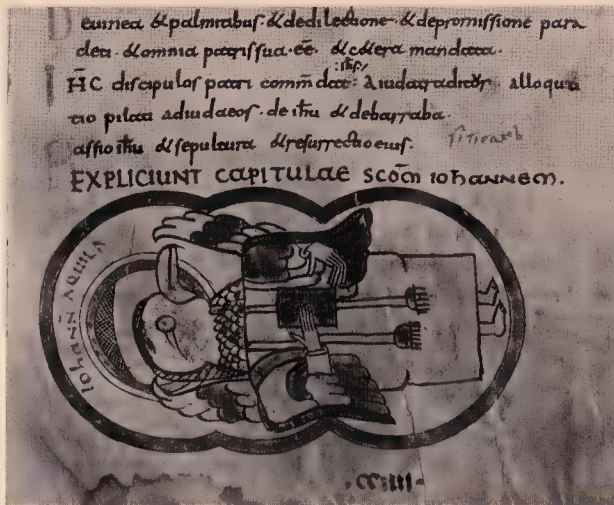 De uinea & palmitibus · & de dilectione · & de promissione para
cleti · & omnia patris sua · eē · & cetera mandata ·
Ihc discipulos patri commdat · A iuda traditor alloquu
tio pilati ad iudaeos · de ihu & de barraba ·
Passio ihu & sepultura & resurrectio eius ·
EXPLICIUNT CAPITULAE SCDM IOHANNEM ·
IOHANN AQUILA